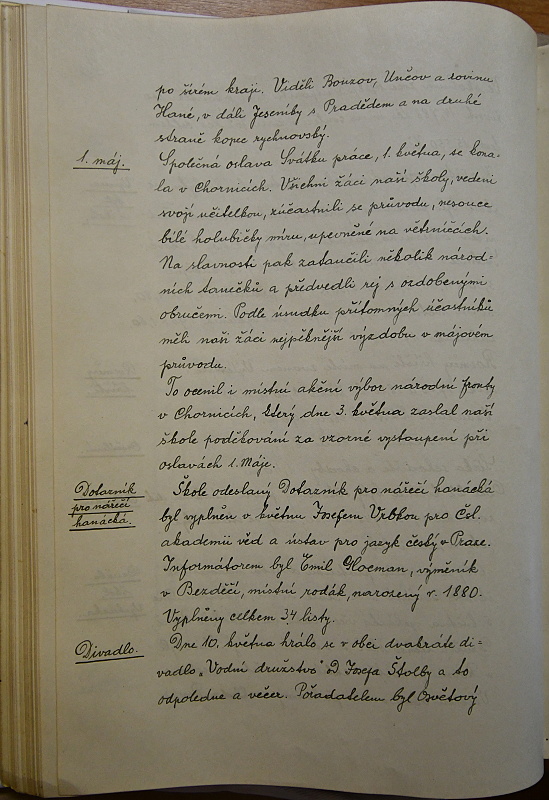 po šírém kraji. Viděli Bouzov, Uničov a rovinu
Hané, v dáli Jeseníky s Pradědem a na druhé
straně kopec rychnovský.
1. máj.
Společná oslava Svátku práce, 1. května, se kona-
la v Chornicích. Všichni žáci naší školy, vedeni
svojí učitelkou, zúčastnili se průvodu, nesouce
bílé holubičky míru, upevněné na větrníčcích.
Na slavnosti pak zatančili několik národ-
ních tanečků a předvedli rej s ozdobenými
obručemi. Podle úsudku přítomných účastníků
měli naši žáci nejpěknější výzdobu v májovém
průvodu.
To ocenil i místní akční výbor národní fronty
v Chornicích, který dne 3. května zaslal naší
škole poděkování za vzorné vystoupení při
oslavách 1. Máje.
Dotazník
pro nářečí
hanácká.
Škole odeslaný Dotazník pro nářečí hanácká
byl vyplněn v květnu Josefem Vrbkou pro Čsl.
akademii věd a ústav pro jazyk český v Praze.
Informátorem byl Emil Hocman, výměník
v Bezděčí, místní rodák, narozený r. 1880.
Vyplněny celkem 34 listy.
Divadlo.
Dne 10. května hrálo se v obci dvakráte di-
vadlo „Vodní družstvo" Josefa Štolby a to
odpoledne a večer. Pořadatelem byl Osvětový